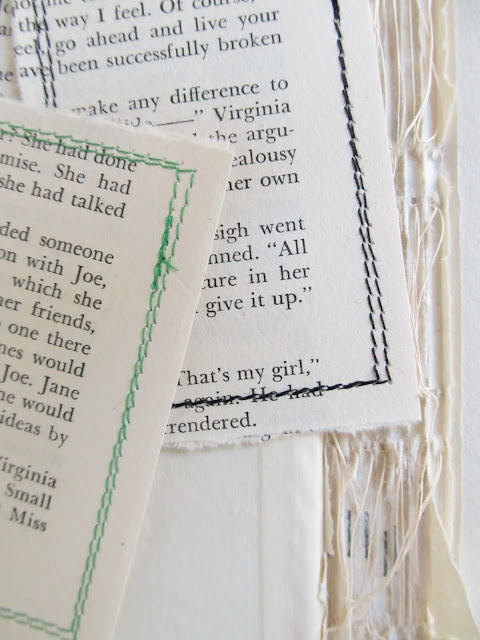 the way I feel. Of course,
go ahead and live your
been successfully broken
make any difference to
" Virginia
the argu-
her own
sigh went
"All
in her
give it up."
That's my girl,"
again. He had
rendered.
She had done
She had
she had talked
someone
on with Joe,
which she
her friends,
one there
would
Joe. Jane
would
ideas by
Virginia
Small
Miss